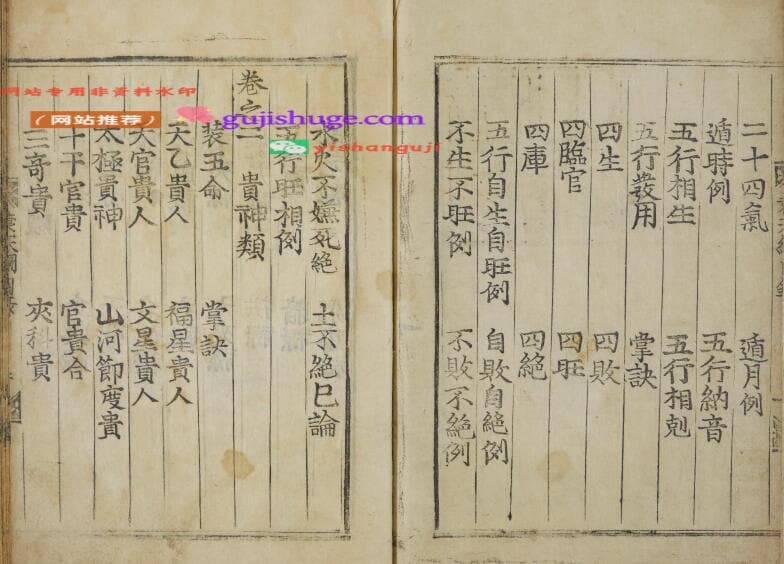 二十四氣 遁月例
遁時例 五行納音
五行相生 五行相剋
五行發用 掌訣
四生 四敗
四臨官 四旺
四庫 四絕
五行自生自旺例 自敗自絕例
不生不旺例 不敗不絕例
水火不嫌死絕 土不絕巳論
五行旺相例
卷之二 貴神類
裝五命 掌訣
天乙貴人 福星貴人
天官貴人 文星貴人
太極貴神 山河節度貴
十干官貴 官貴合
三奇貴 夾科貴
网站专用非资料水印
（网站推荐）
gujishuge.com
yishanguji